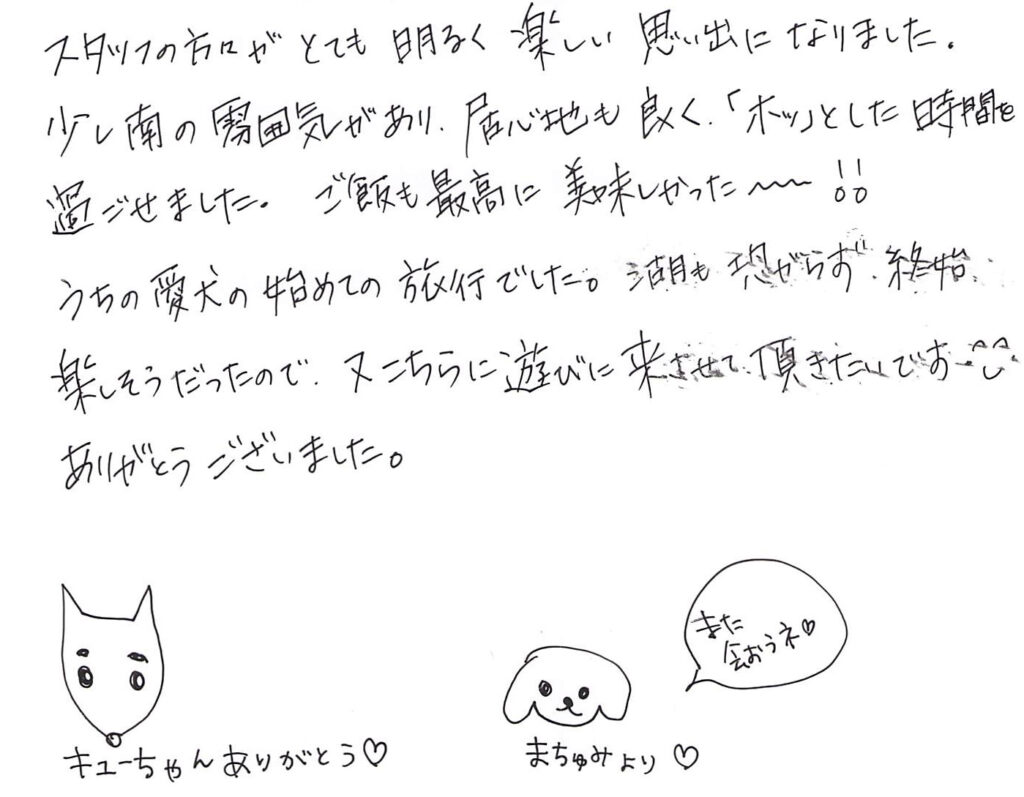 スタッフの方々がとても明るく楽しい思い出になりました。
少し南の雰囲気があり、居心地も良く、「ホッ」とした時間を
過ごせました。 ご飯も最高に美味しかった〜〜!!
うちの愛犬の始めての旅行でした。湖も恐がらず、終始
楽しそうだったので、又こちらに遊びに来させて頂きたいです^^
ありがとうございました。
また
会おうネ♡
キューちゃんありがとう♡
まちゅみより♡